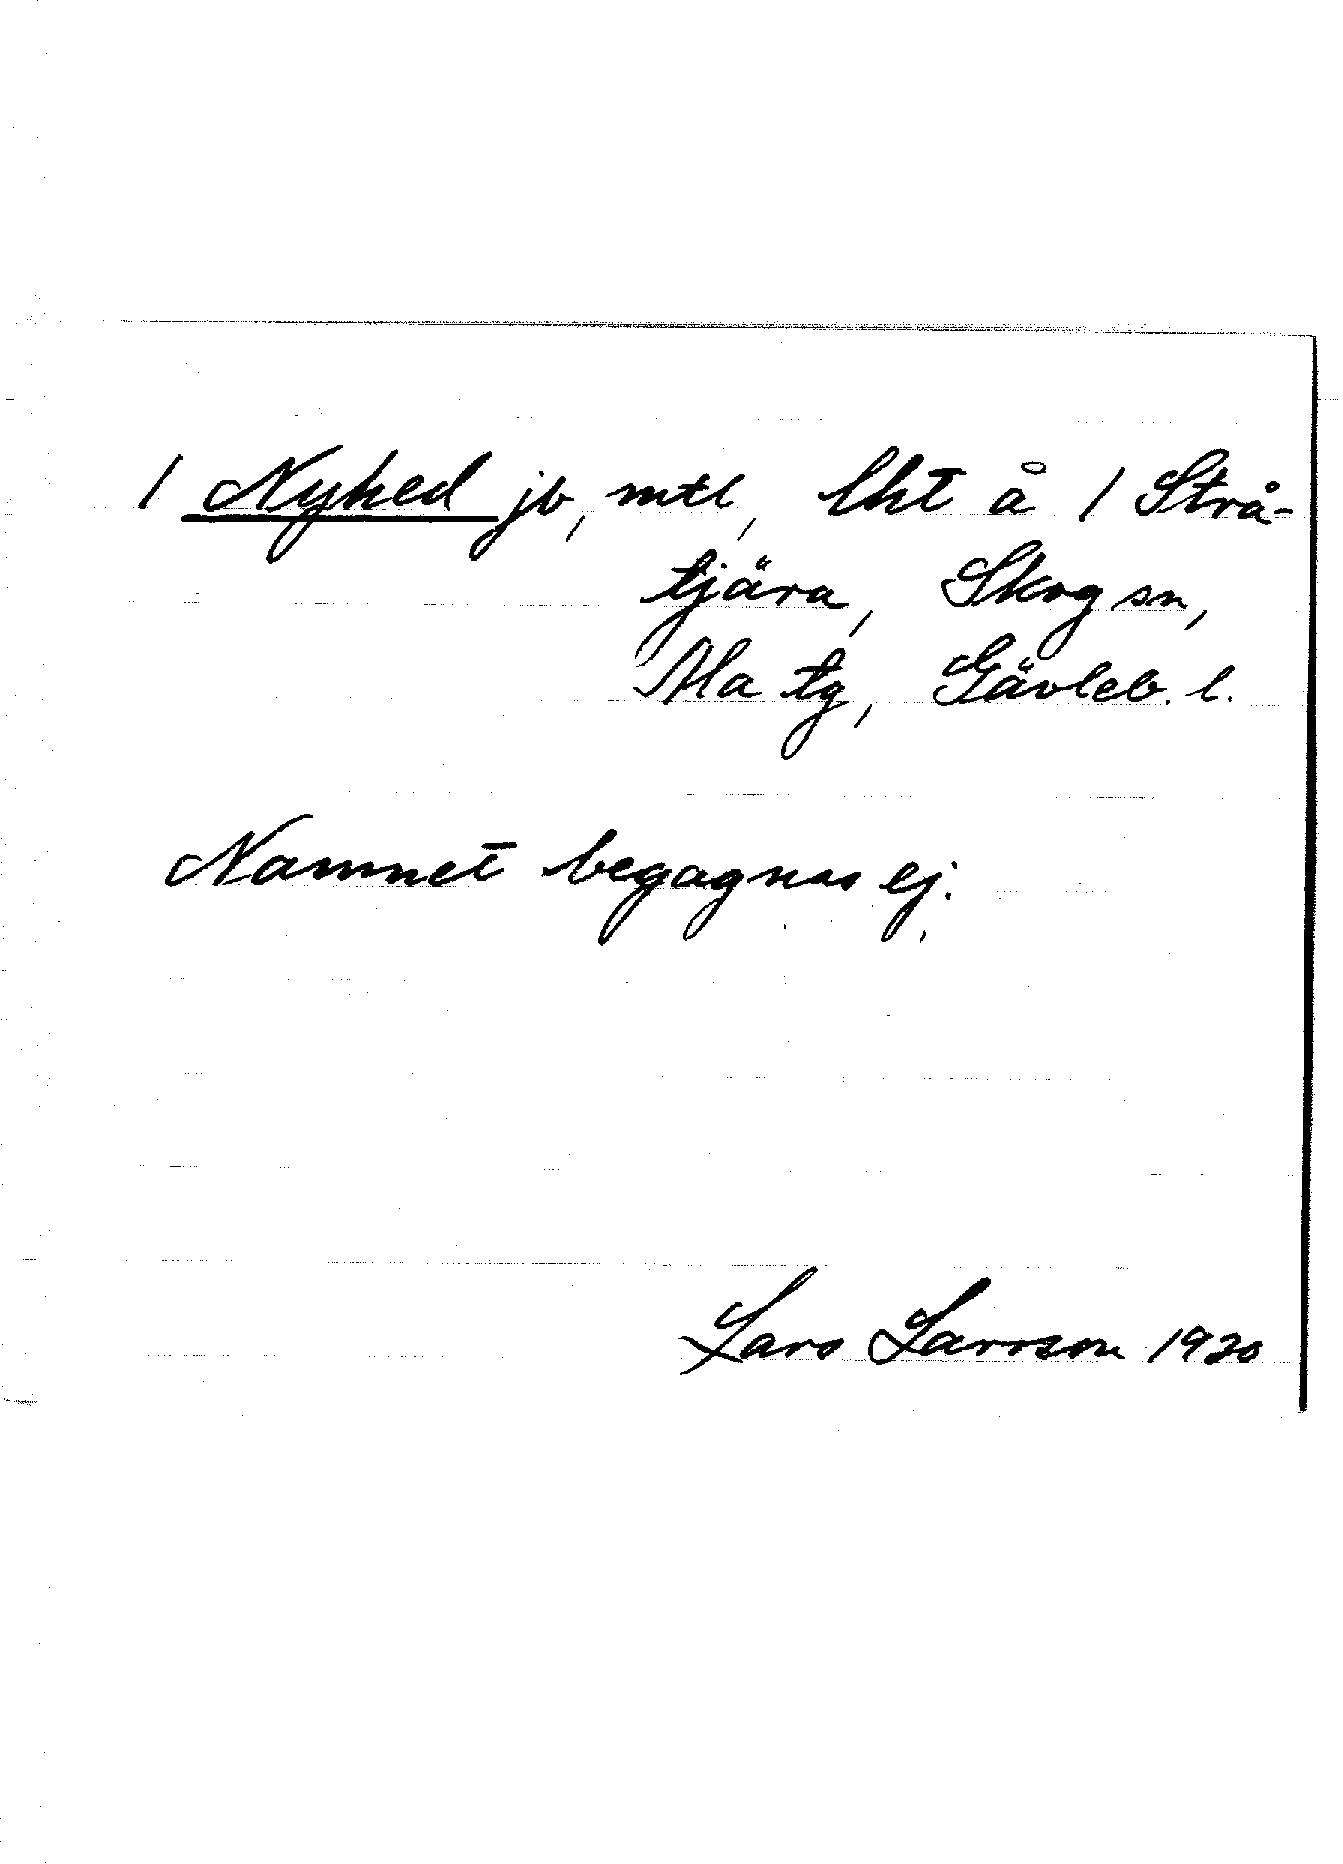 1 Nyhed jb, mtl, lht å 1 Strå-
tjära, Skog sn,
Ala tg, Gävleb. l.
Namnet begagnas ej.
Lars Larsson 1920